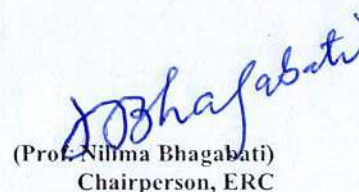 NBhagabati
(Prof. Nilima Bhagabati)
Chairperson, ERC